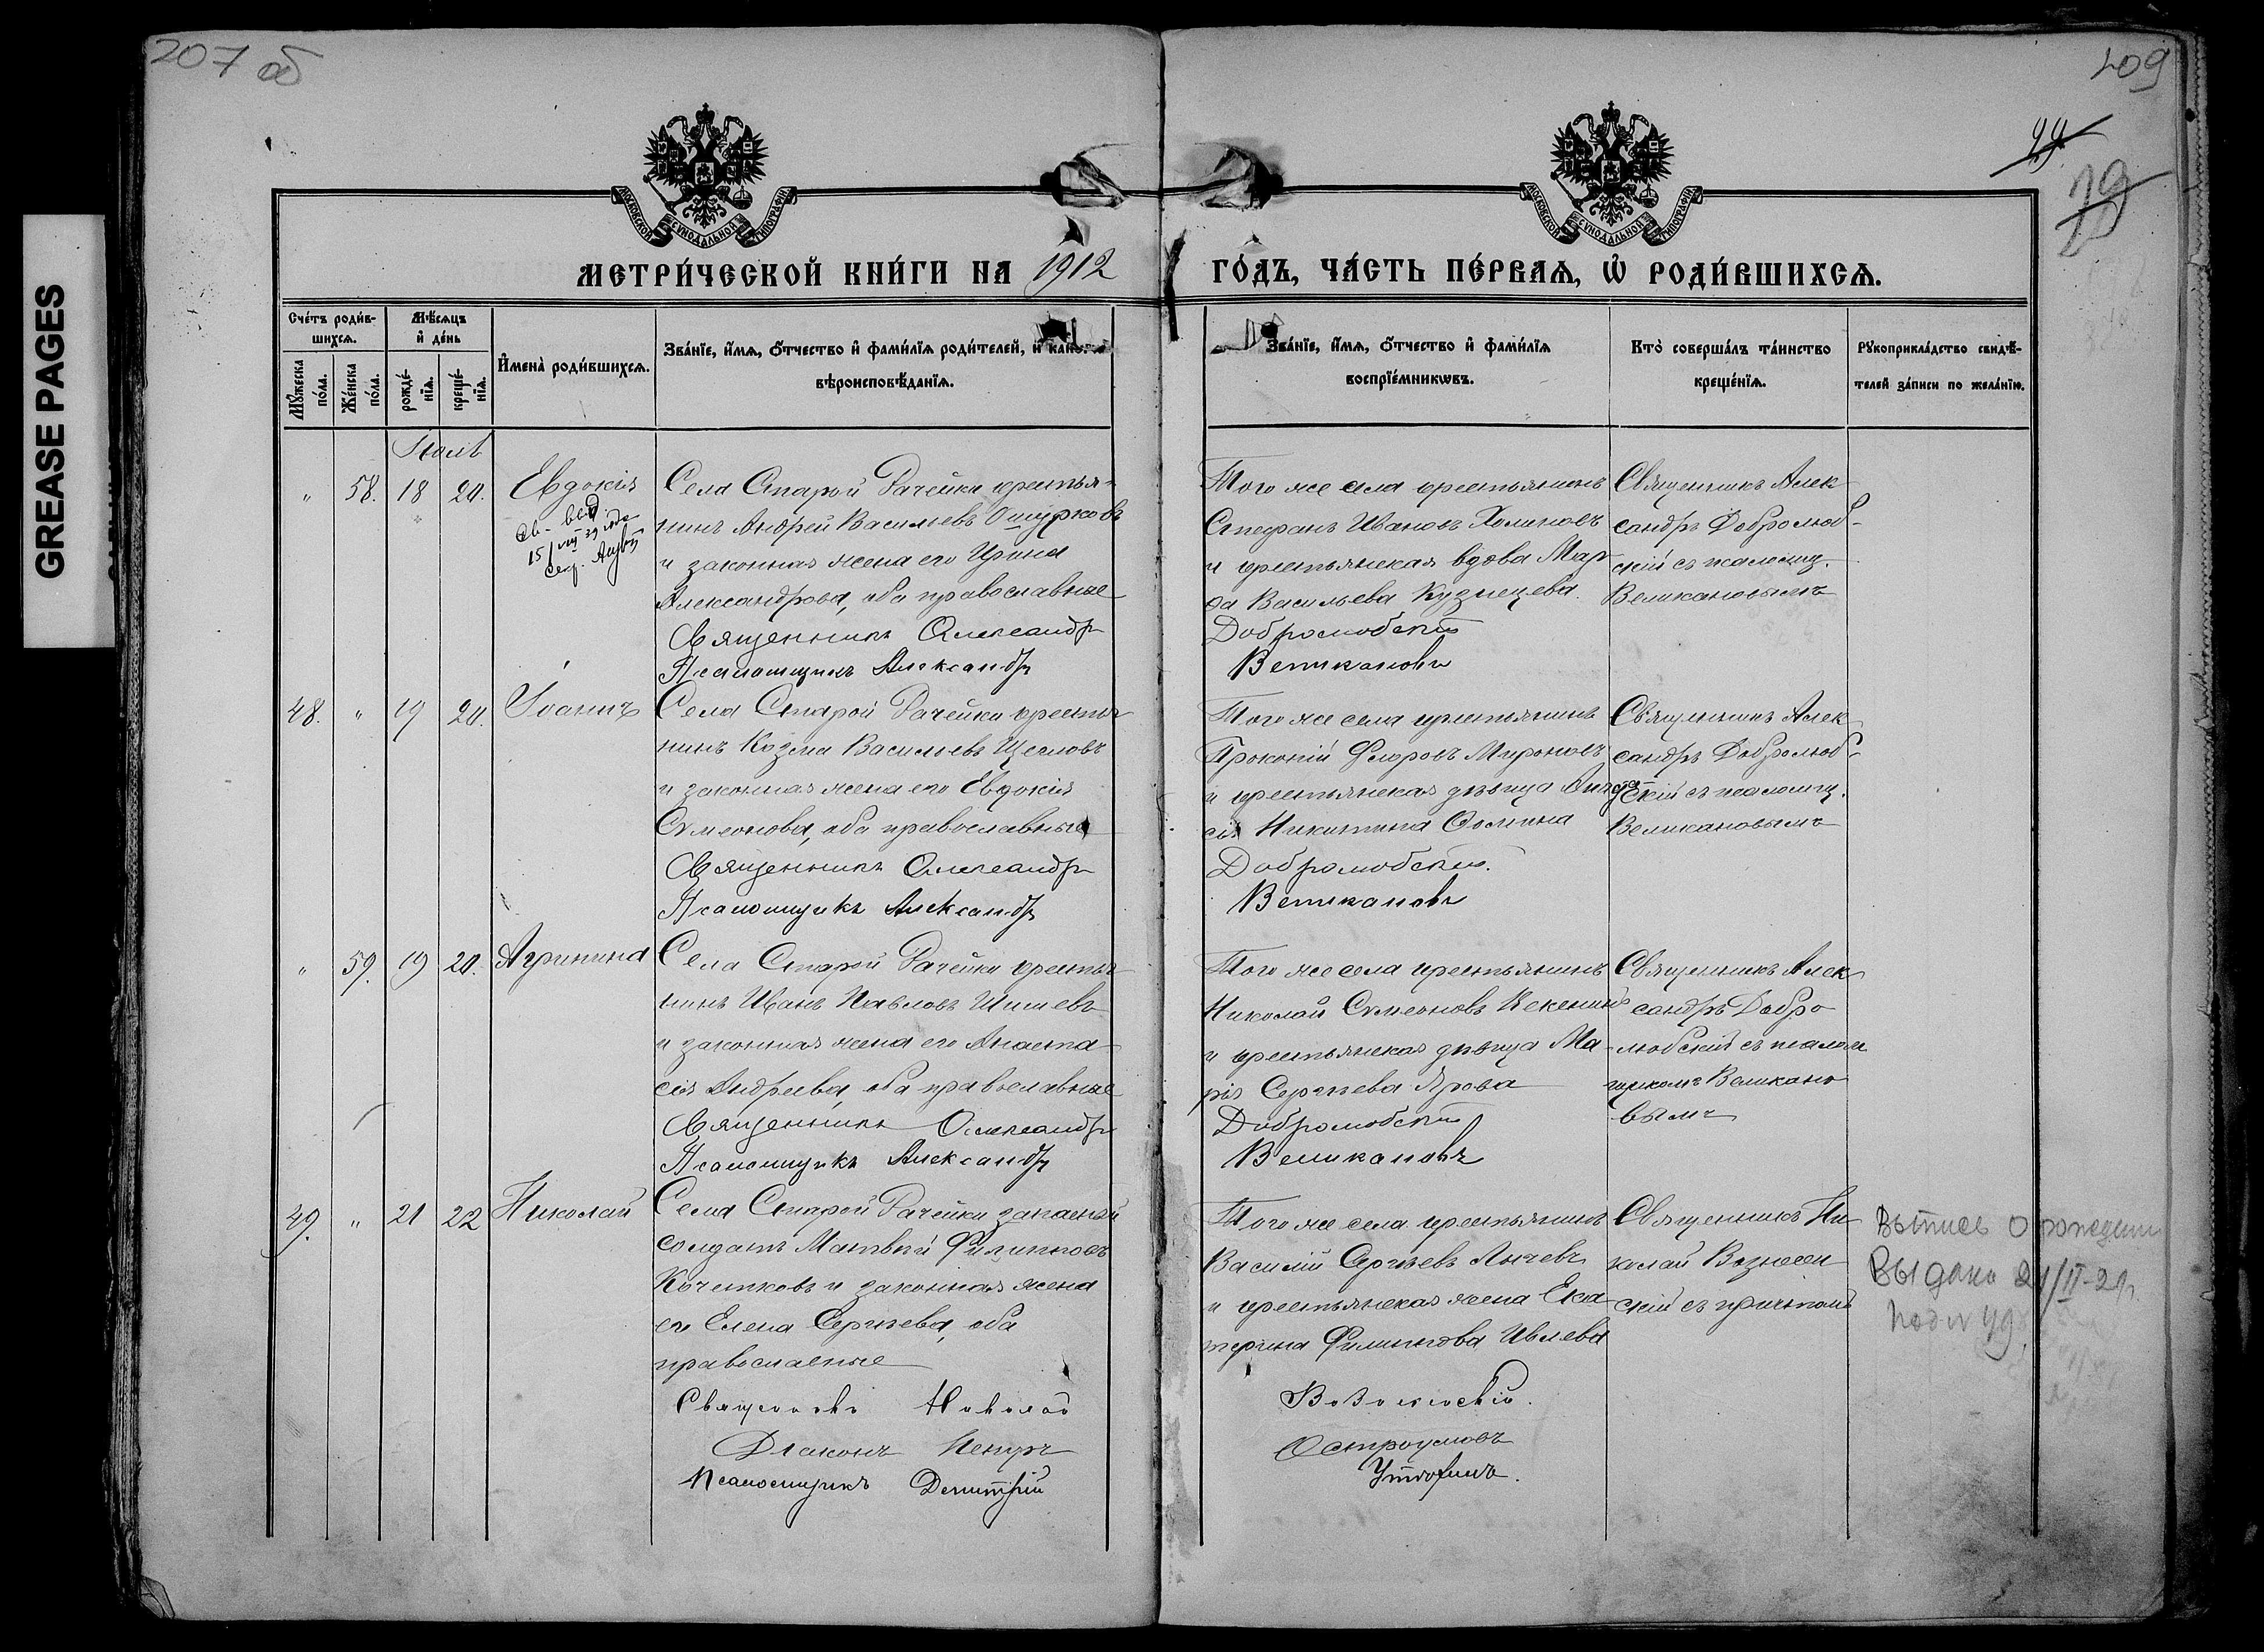 207 об
209
29
29
GREASE PAGES
МОСКОВСКОЙ СѴНОДАЛЬНОЙ ТИПОГРАФІИ
МОСКОВСКОЙ СѴНОДАЛЬНОЙ ТИПОГРАФІИ
МЕТРИ́ЧЕСКОЙ КНИ́ГИ НА 1912 ГО́ДЪ, ЧА́СТЬ ПЕ́РВАѦ, Ѡ҆ РОДИ́ВШИХСѦ.
Сче́тъ роди́в-
шихсѧ.
Мѣ́сѧцъ
и҆ де́нь
Мꙋ́жеска
по́ла.
Же́нска
по́ла.
рожде́-
нїѧ.
креще́-
нїѧ.
И҆мена̀ роди́вшихсѧ.
Зва́нїе, и҆́мѧ, ѻ҆́тчество и҆ фами́лїѧ роди́телей, и҆
вѣроисповѣ́данїѧ.
Зва́нїе, и҆́мѧ, ѻ҆́тчество и҆ фами́лїѧ
воспрїе́мникѡвъ.
Кто̀ соверша́лъ та́инство
креще́нїѧ.
Рꙋкоприкла́дство свидѣ́-
телей за́писи по жела́нїю.
Іюль
" 58. 18 20. Евдокія
Св-во выд.
15/VIII 29 года
Секр.
Села Старой Рачейки крестья-
нинъ Андрей Васильевъ Ошурковъ
и законная жена его Ирина
Александрова, оба православные
Священникъ Александръ
Псаломщикъ Александръ
Того же села крестьянинъ
Стефанъ Ивановъ Холиновъ
и крестьянская вдова Мар-
ѳа Васильева Кузнецева
Добролюбскій
Великановъ
Священникъ Алек-
сандръ Добролюб-
скій съ псаломщ.
Великановымъ
48. " 19 20. Іоаннъ
Села Старой Рачейки крестья-
нинъ Козма Васильевъ Щегловъ
и законная жена его Евдокія
Сѵмеонова, оба православные
Священникъ Александръ
Псаломщикъ Александръ
Того же села крестьянинъ
Прокопій Ѳедоровъ Мироновъ
и крестьянская дѣвица
Никитина Ѳомина
Добролюбскій.
Великановъ
Священникъ Алек-
сандръ Добролюб-
скій съ псаломщ.
Великановымъ
" 59. 19 20. Агрипина
Села Старой Рачейки крестья-
нинъ Иванъ Павловъ Шишевъ
и законная жена его Анаста-
сія Андреева, оба православные
Священникъ Александръ
Псаломщикъ Александръ
Того же села крестьянинъ
Николай Сѵмеоновъ Кекенинъ
и крестьянская дѣвица Ма-
рія Сергѣева Ярова
Добролюбскій
Великановъ
Священникъ Алек-
сандръ Добро-
любскій съ псалом-
щикомъ Великано-
вымъ
49. " 21 22 Николай
Села Старой Рачейки запасный
солдатъ Матвѣй Филипповъ
Кочетковъ и законная жена
его Елена Сергѣева, оба
православные
Священникъ Николай
Діаконъ Петръ
Псаломщикъ Димитрій
Того же села крестьянинъ
Василій Сергѣевъ Лычевъ
и крестьянская жена Ека-
терина Филиппова Ивлева
Вознесенскій.
Остроумовъ
Священникъ Ни-
колай Вознесен-
скій съ причтомъ
Выпись о рождении
Выдана 21/II-29г.
под № 49